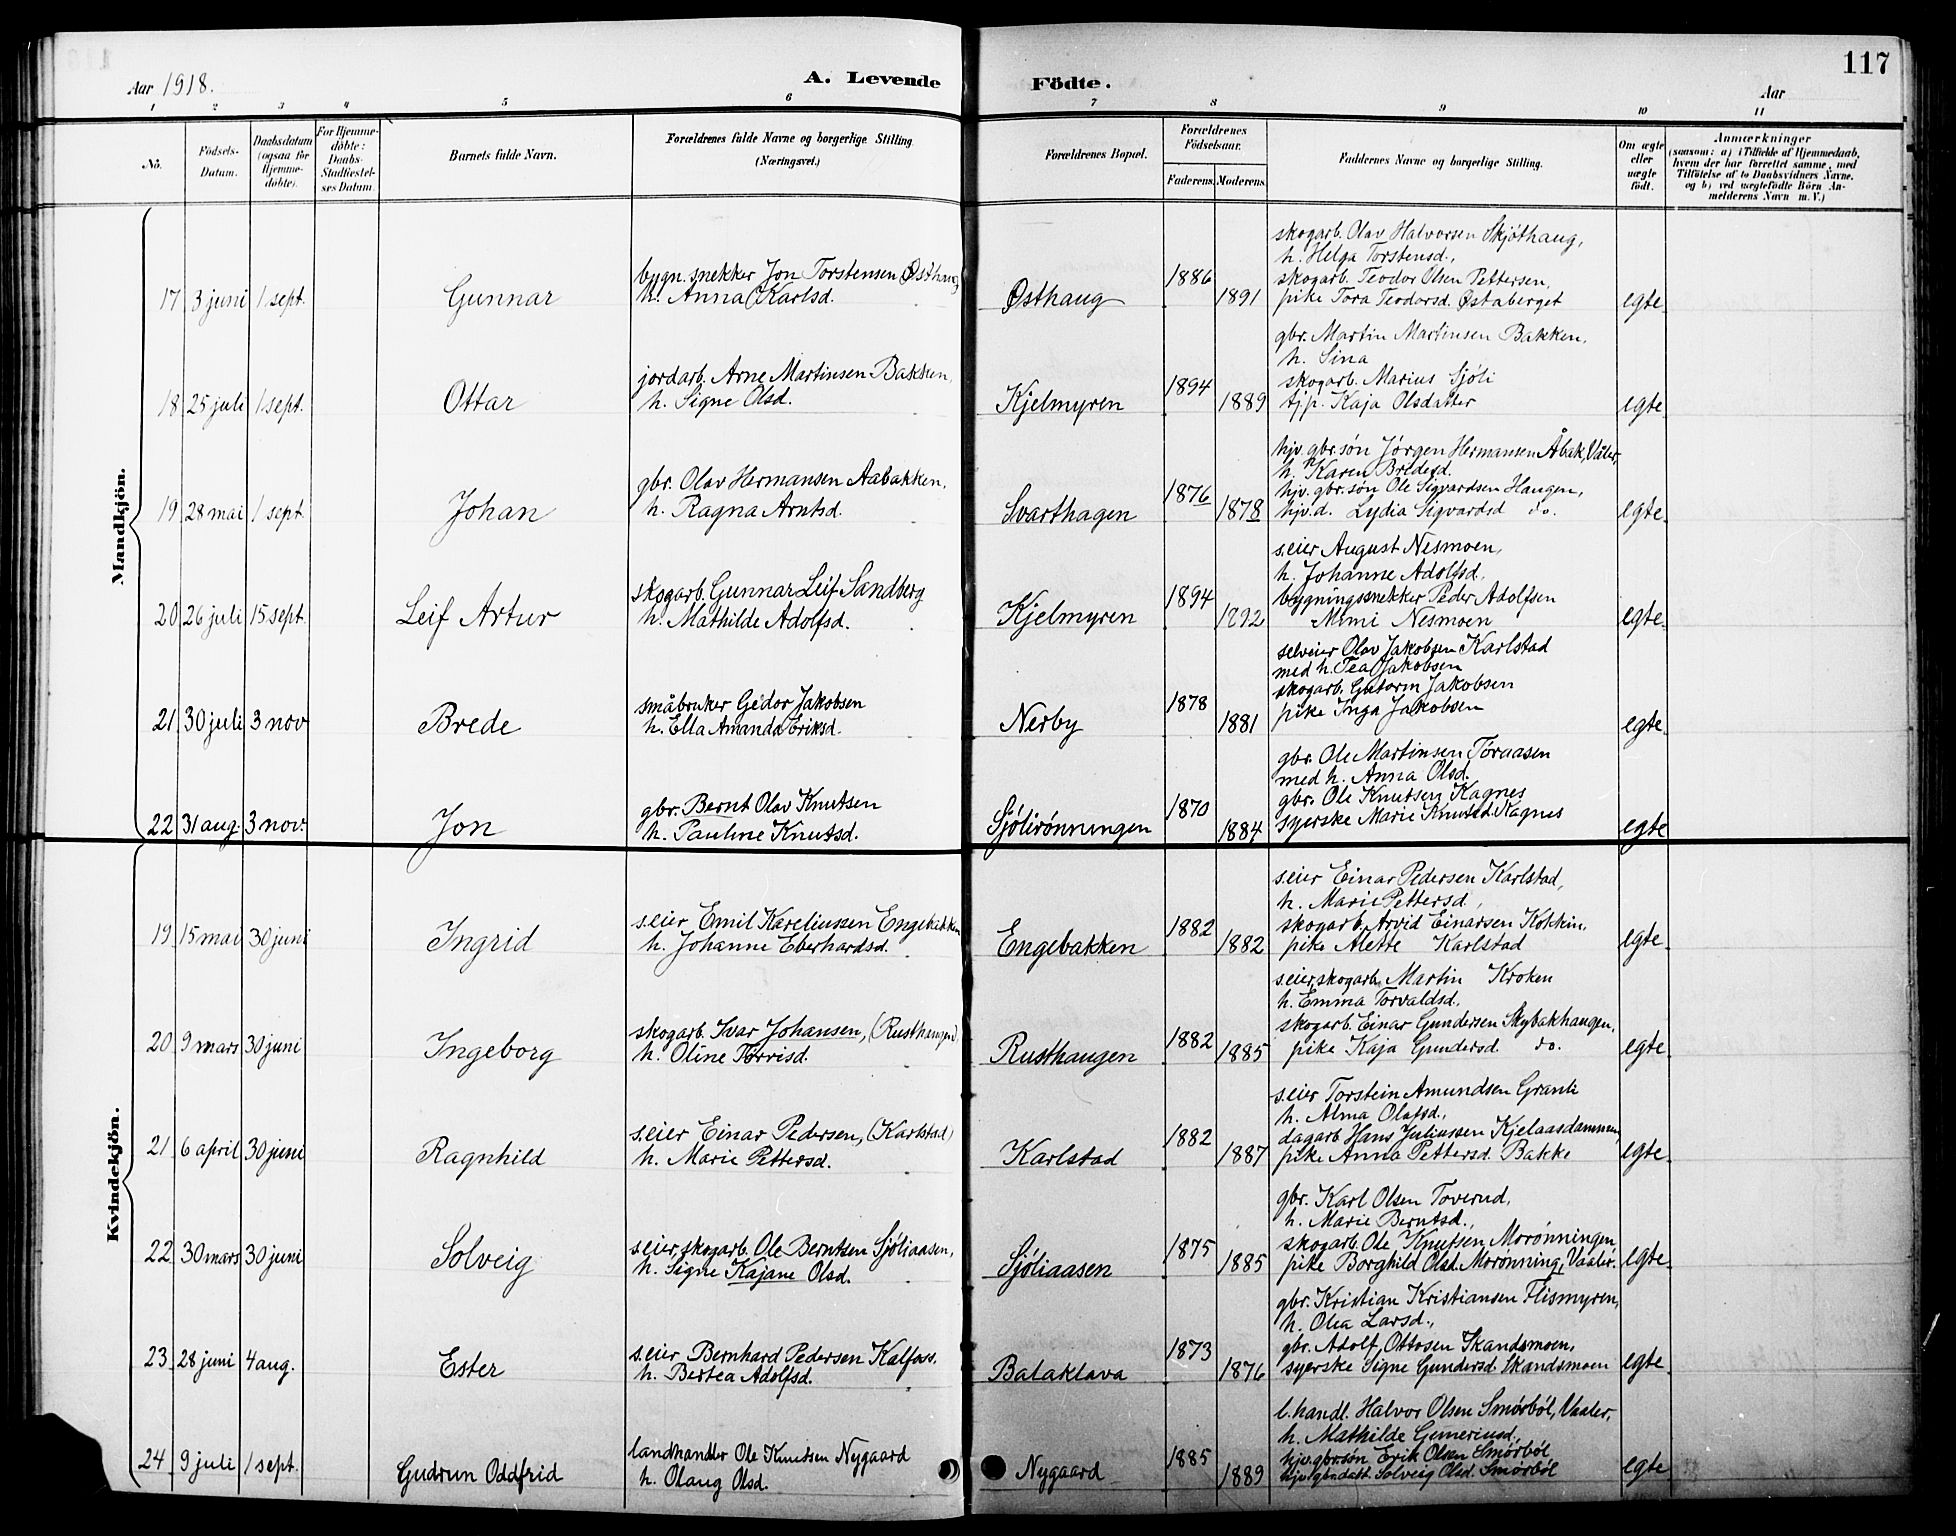 117
Aar 1918.
A. Levende Födte.
Aar
1 2 3 4 5 6 7 8 9 10 11
No.
Födsels-Datum.
Daabsdatum (ogsaa for Hjemme-döbte).
For Hjemme-döbte: Daabs-Stadfæstel-ses Datum.
Barnets fulde Navn.
Forældrenes fulde Navne og borgerlige Stilling (Næringsvei.)
Forældrenes Bopæl.
Forældrenes Födselsaar.
Faderens. Moderens.
Faddernes Navne og borgerlige Stilling.
Om ægte eller uægte födt.
Anmærkninger
(saasom: a) i Tilfælde af Hjemmedaab,
hvem der har forrettet samme, med
Tilföielse af to Daabsvidners Navne.
og b) ved uægtefödte Börn An-
melderens Navn m. V.)
Mandkjön.
skogarb. Olav Halvorsen Skjöthaug,
h. Helga Torstensd.,
bygn.snekker Jon Torstensen Østhaug
skogarb. Teodor Olsen Pettersen,
17 3 juni 1 sept. Gunnar h. Anna Karlsd. Østhaug 1886 1891 pike Tora Teodorsd. Østaberget egte
gbr. Martin Martinsen Bakken,
h. Sina
jordarb. Arne Martinsen Bakken,
skogarb. Marius Sjöli
18 25 juli 1 sept. Ottar h. Signe Olsd. Kjelmyren 1894 1889 tjp. Kaja Olsdatter egte
hjv. gbr.søn Jørgen Hermansen Åbak, Våler,
h. Karen Bredesd.
gbr. Olav Hermansen Aabakken,
hjv. gbr.søn Ole Sigvardsen Haugen,
19 28 mai 1 sept. Johan h. Ragna Arntsd. Svarthagen 1876 1878 hjv.d. Lydia Sigvardsd do. egte.
s.eier August Nesmoen,
h. Johanne Adolfsd.
skogarb. Gunnar Leif Sandberg
bygningssnekker Peder Adolfsen
20 26 juli 15 sept. Leif Artur h. Mathilde Adolfsd. Kjelmyren 1894 1892 Mimi Nesmoen egte.
selveier Olav Jakobsen Karlstad
med h. Tea Jakobsen
småbruker Gedor Jakobsen
skogarb. Gutorm Jakobsen
21 30 juli 3 nov Brede h. Ella Amanda Eriksd. Nerby 1878 1881 pike Inga Jakobsen egte.
gbr. Ole Martinsen Toraasen
med h. Anna Olsd.
gbr. Bernt Olav Knutsen
gbr. Ole Knutsen Kagnes
22 31 aug. 3 nov. Jon h. Pauline Knutsd. Sjölirönningen 1870 1884 syerske Marie Knutsd. Kagnes egte
Kvindekjön.
s.eier Einar Pedersen Karlstad,
h. Marie Pettersd,
s.eier Emil Kareliussen Engebakken
skogarb. Arvid Einarsen Kokkin,
19 15 mai 30 juni Ingrid h. Johanne Eberhardsd. Engebakken 1882 1882 pike Alette Karlstad egte.
s.eier, skogarb. Martin Kroken
h. Emma Torvaldsd.
skogarb. Ivar Johansen, (Rusthaugen)
skogarb. Einar Gundersen Skybakhaugen,
20 9 mars 30 juni Ingeborg h. Oline Torrisd. Rusthaugen 1882 1885 pike Kaja Gundersd. do. egte.
s.eier Torstein Amundsen Granli
h. Alma Olafsd.,
s.eier Einar Pedersen, (Karlstad)
dagarb. Hans Juliussen Kjelaasdammen
21 6 april 30 juni Ragnhild h. Marie Pettersd. Karlstad 1882 1887 pike Anna Pettersd. Bakke egte.
gbr. Karl Olsen Toverud,
h. Marie Berntsd.,
s.eier, skogarb. Ole Berntsen Sjöliaasen,
skogarb. Ole Knutsen Morønningen,
22 30 mars 30 juni Solveig h. Signe Kajane Olsd. Sjöliaasen 1875 1885 pike Borghild Olsd. Morønning, Vaaler. egte.
gbr. Kristian Kristiansen Flismyren,
h. Olea Larsd.,
s.eier Bernhard Pedersen Kalfoss.
gbr. Adolf Ottosen Skandsmoen,
23 28 juni 4 aug. Ester h. Bertea Adolfsd. Balaklava 1873 1876 syerske Signe Gundersd. Skandsmoen egte.
l.handl. Halvor Olsen Smörböl, Vaaler,
h. Mathilde Gumeriusd.
landhandler Ole Knudsen Nygaard
hjv. gbr.søn Erik Olsen Smörböl
24 9 juli 1 sept. Gudrun Oddfrid h. Olaug Olsd. Nygaard 1885 1889 hjv. gbr.datt Solveig Olsd. Smörböl egte